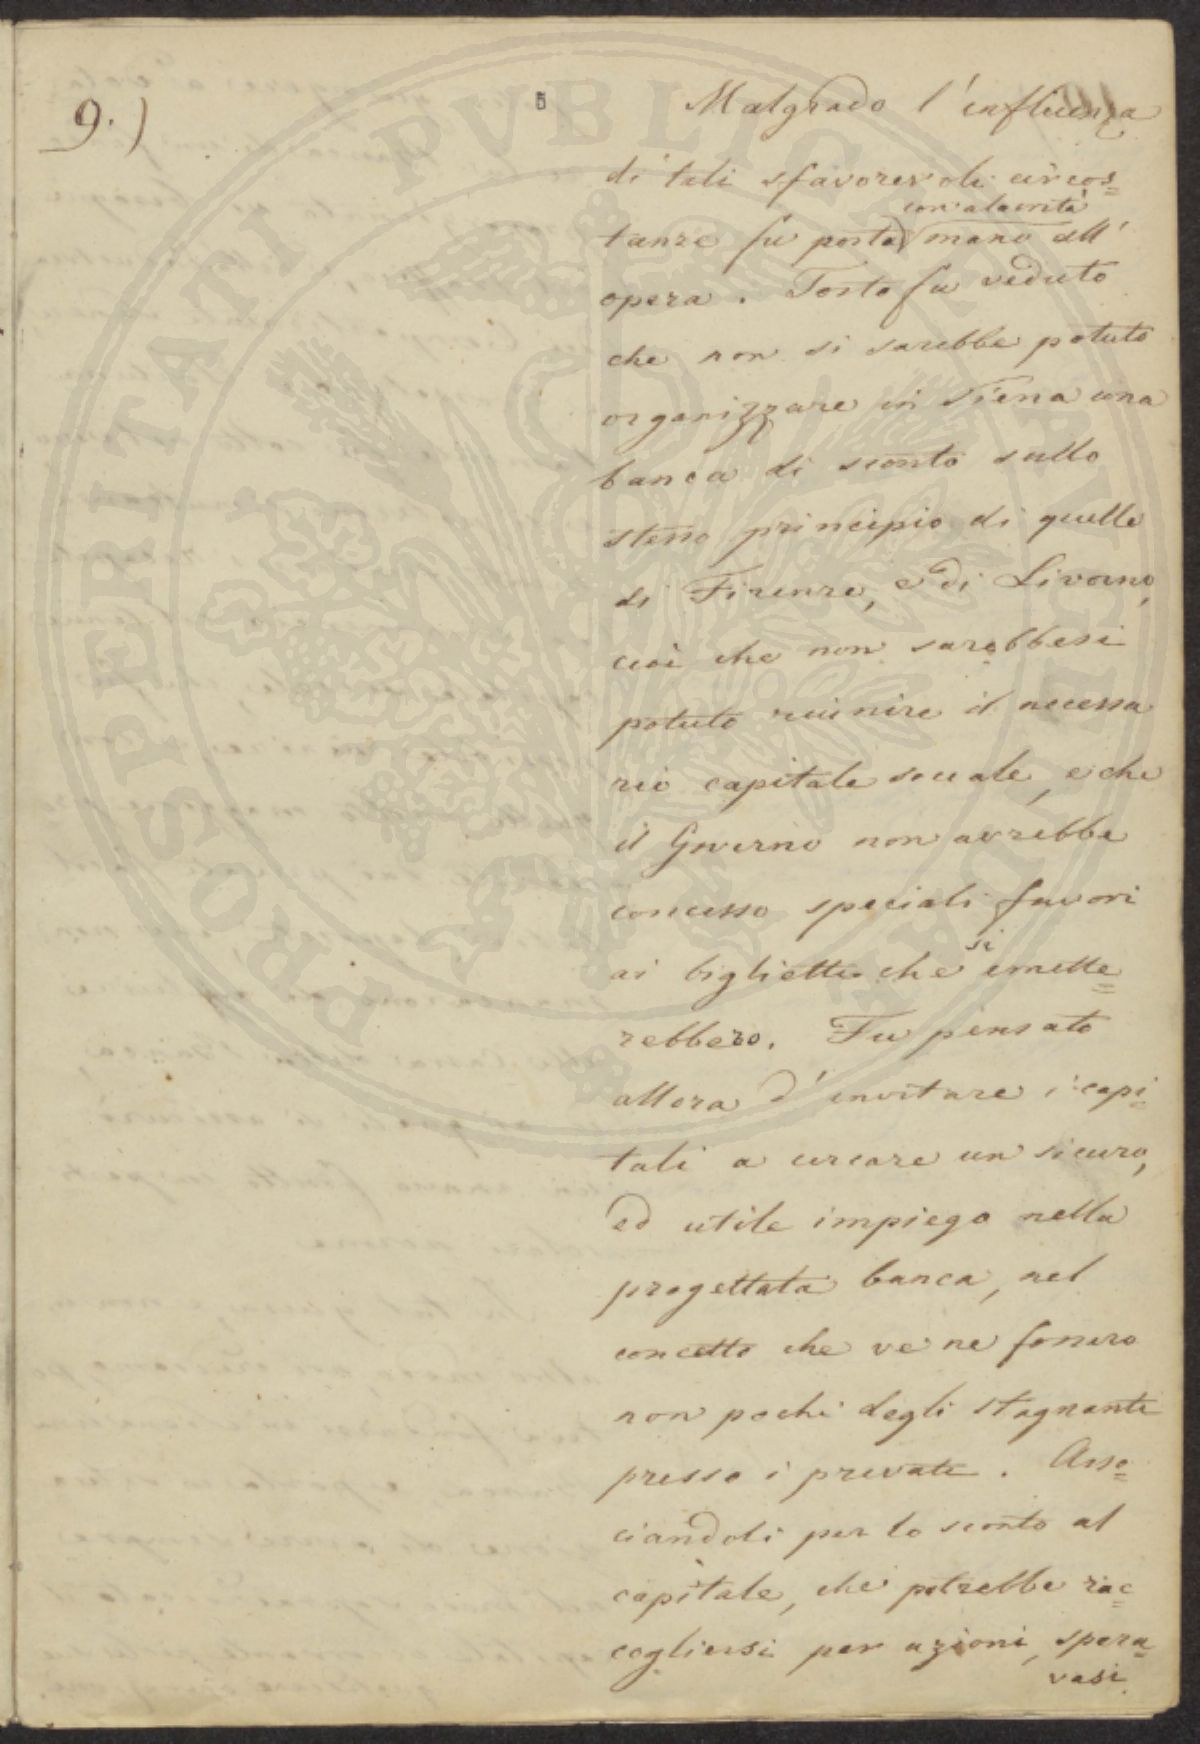 9.)
5
Malgrado l'influenza
di tali sfavorevoli circos=
con alacrità
tanze fu posta mano all'
opera. Tosto fu veduto
che non si sarebbe potuto
organizzare in Siena una
banca di sconto sullo
stesso principio di quelle
di Firenze, e di Livorno,
cioè che non sarebbesi
potuto riunire il necessa
rio capitale sociale, e che
il Governo non avrebbe
concesso speciali favori
si
ai biglietti che emette=
rebbero. Fu pensato
allora d'invitare i capi=
tali a cercare un sicuro,
ed utile impiego nella
progettata banca, nel
concetto che ve ne fossero
non pochi degli stagnanti
presso i privati. Asso=
ciandoli per lo sconto al
capitale, che potrebbe rac=
cogliersi per azioni, spera=
vasi
PROSPERITATI PVBLICAE AVGENDAE